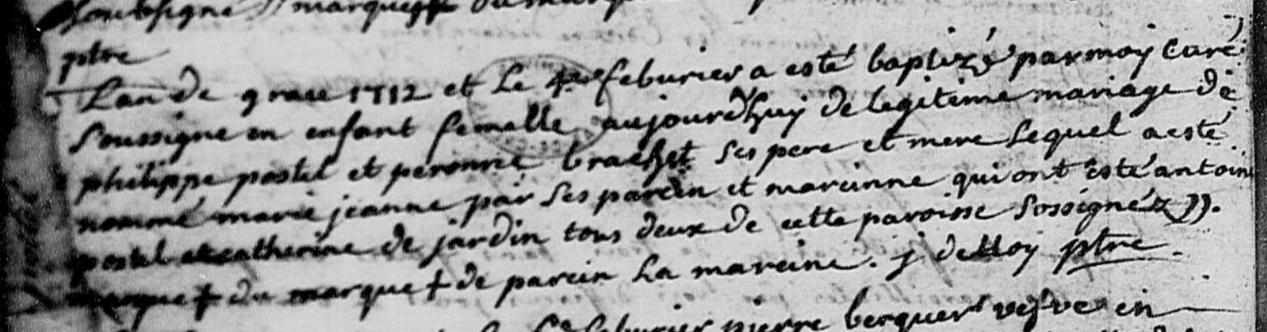 soubsigné
ptre
Lan de grace 1712 et le 4e feburier a esté baptizé par moy curé
soussigne en enfant femelle aujourdhuy de legiteme mariage de
philippe postel et peronne brachet ses pere et mere lequel a esté
nommé marie jeanne par ses parein et marainne qui ont esté antoin
postel et catherine de jardin tous deux de cette paroisse sossignéz JJ.
marque + du marque + de parein la mareine. j delloy ptre
feburier pierre berquer vefve en